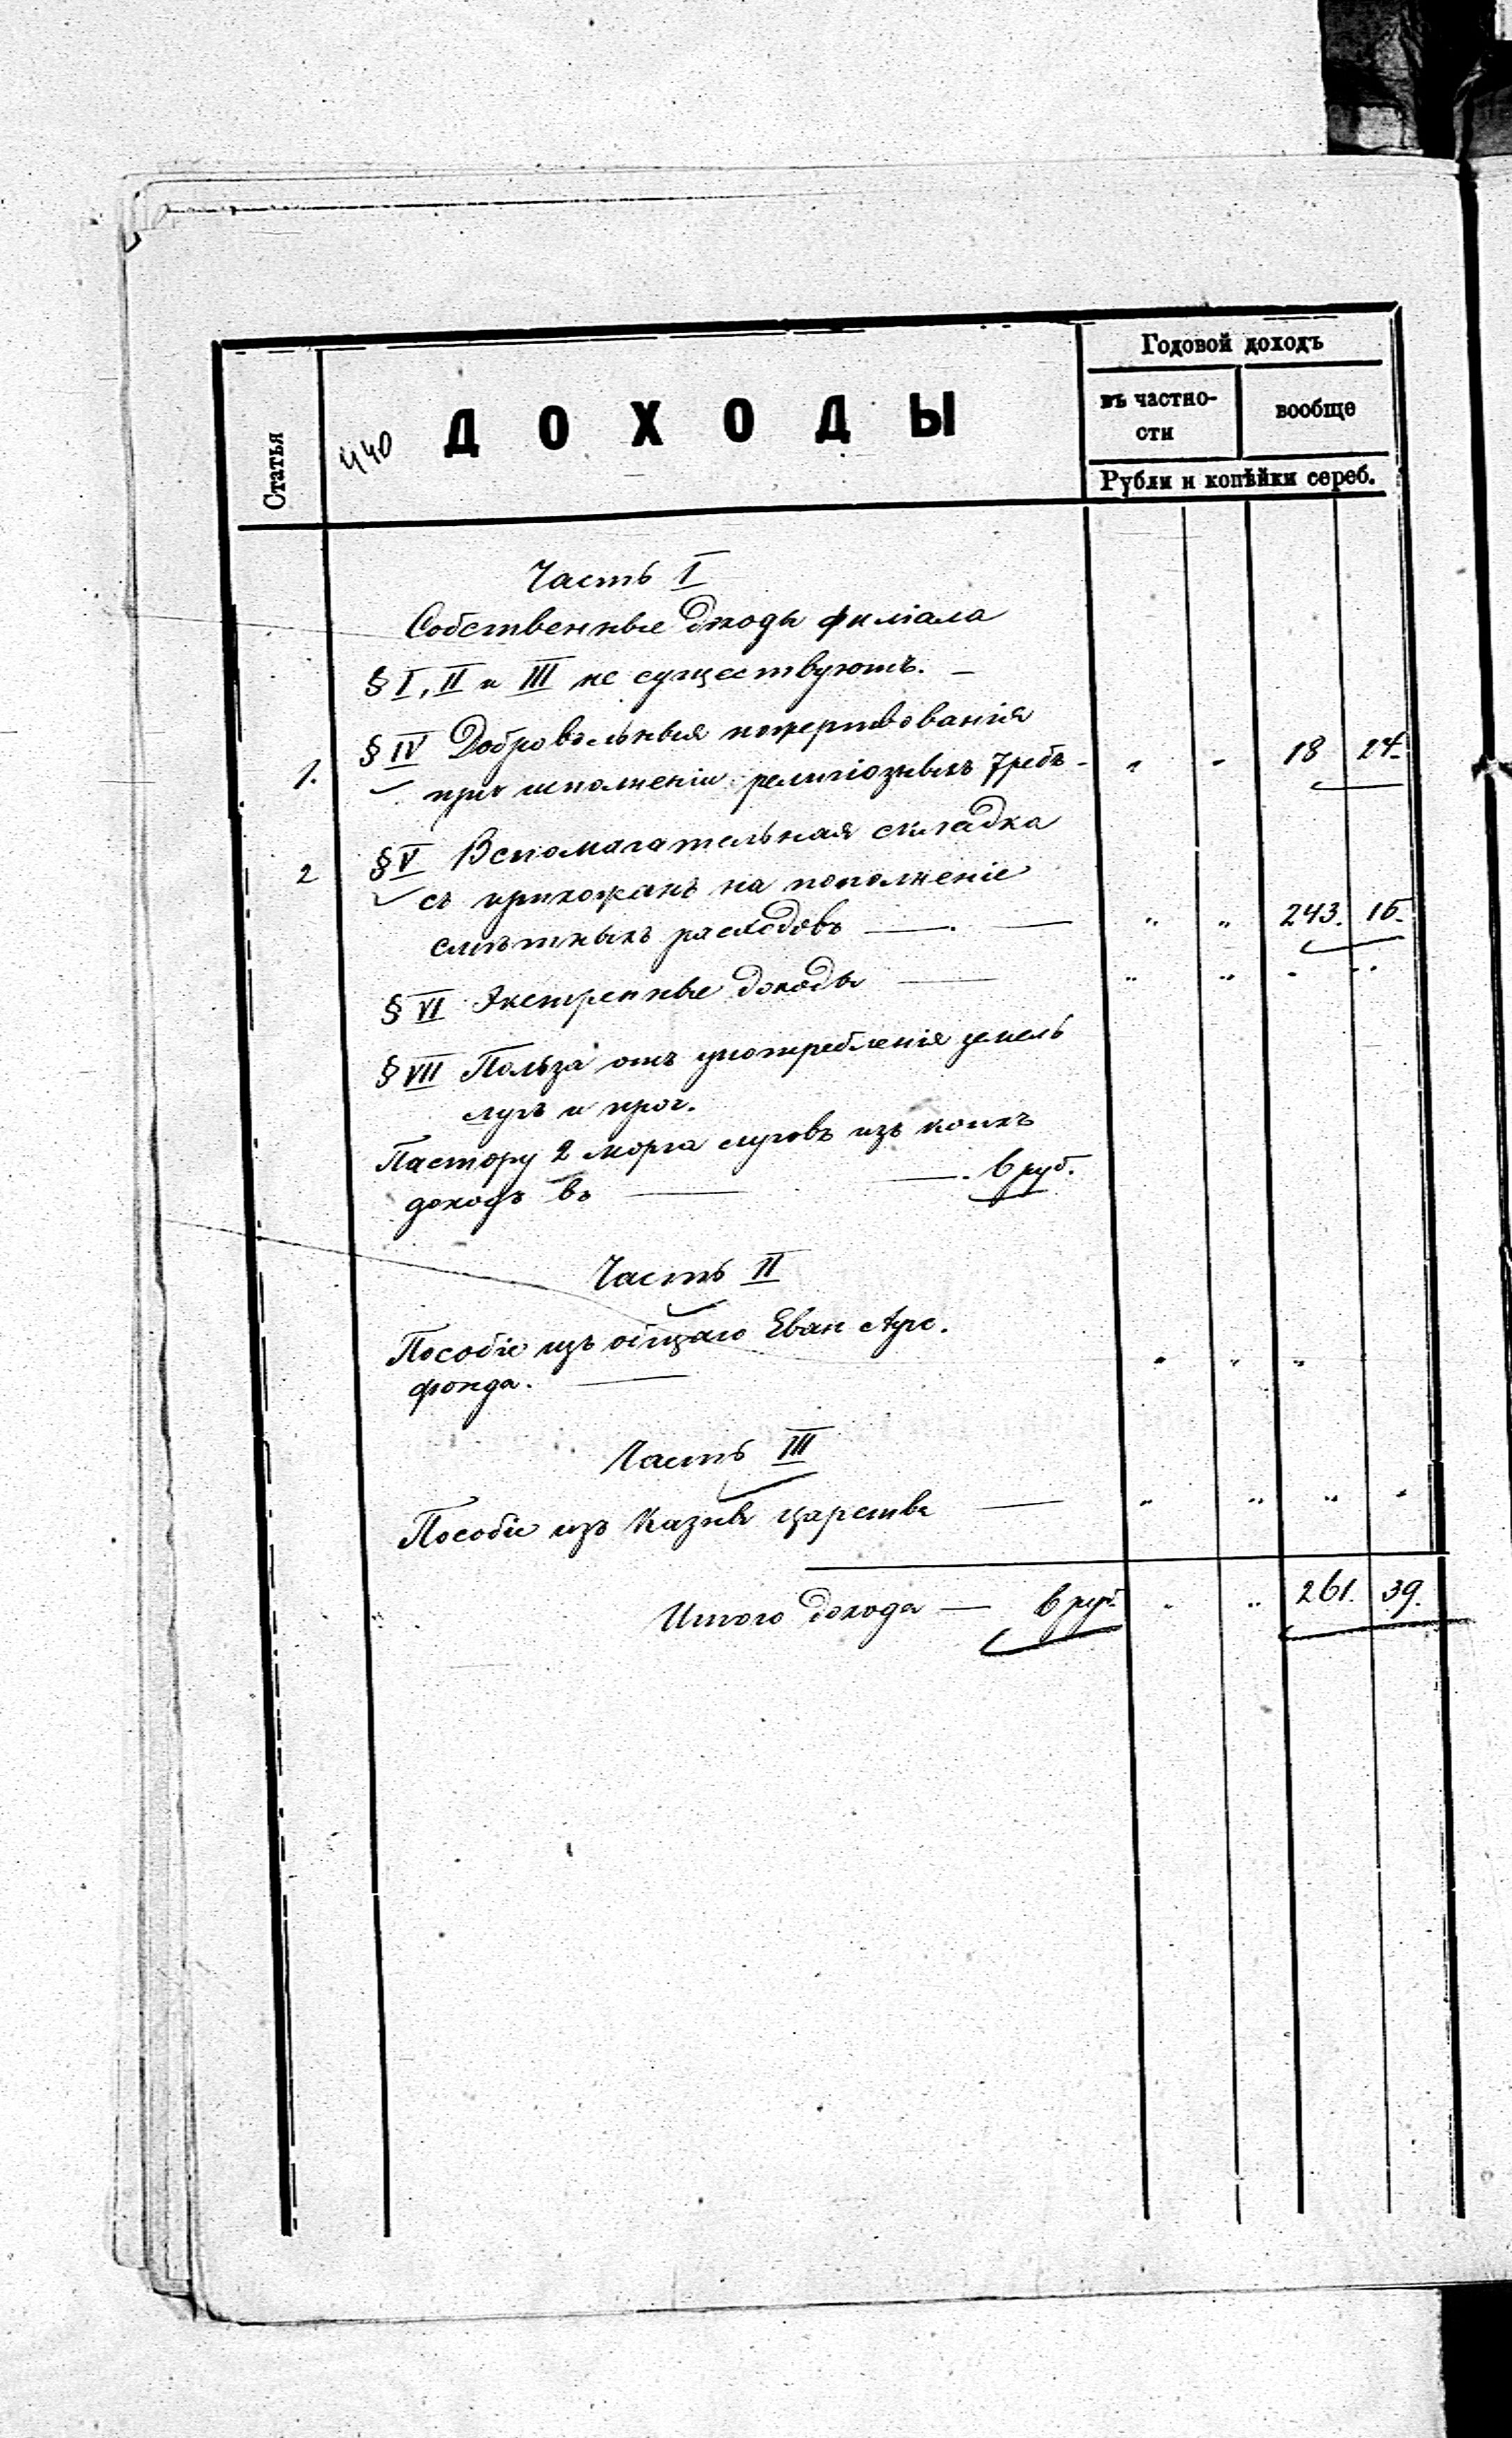 Статья
440
ДОХОДЫ
Годовой доходъ
въ частно-
сти
вообще
Рубли и копѣйки сереб.
Часть I
Собственные доходы филіала
§ I, II и III не существуютъ. —
1. § IV Добровольныя пожертвованія
при исполненіи религіозныхъ требъ - " " 18 24.
2 § V Вспомагательная складка
съ прихожанъ на пополненіе
смѣтныхъ расходовъ — . — " " 243. 15.
§ VI Экстренные доходы — " " " "
§ VII Польза отъ употребленія земель
лугъ и проч.
Пастору 2 морга луговъ изъ коихъ
доходъ въ — — . 6 руб.
Часть II
Пособіе изъ общаго Еван Ауг.
фонда. — " " "
Часть III
Пособіе изъ Казны царства — " " " "
Итого дохода — 6 руб. " " 261. 39.